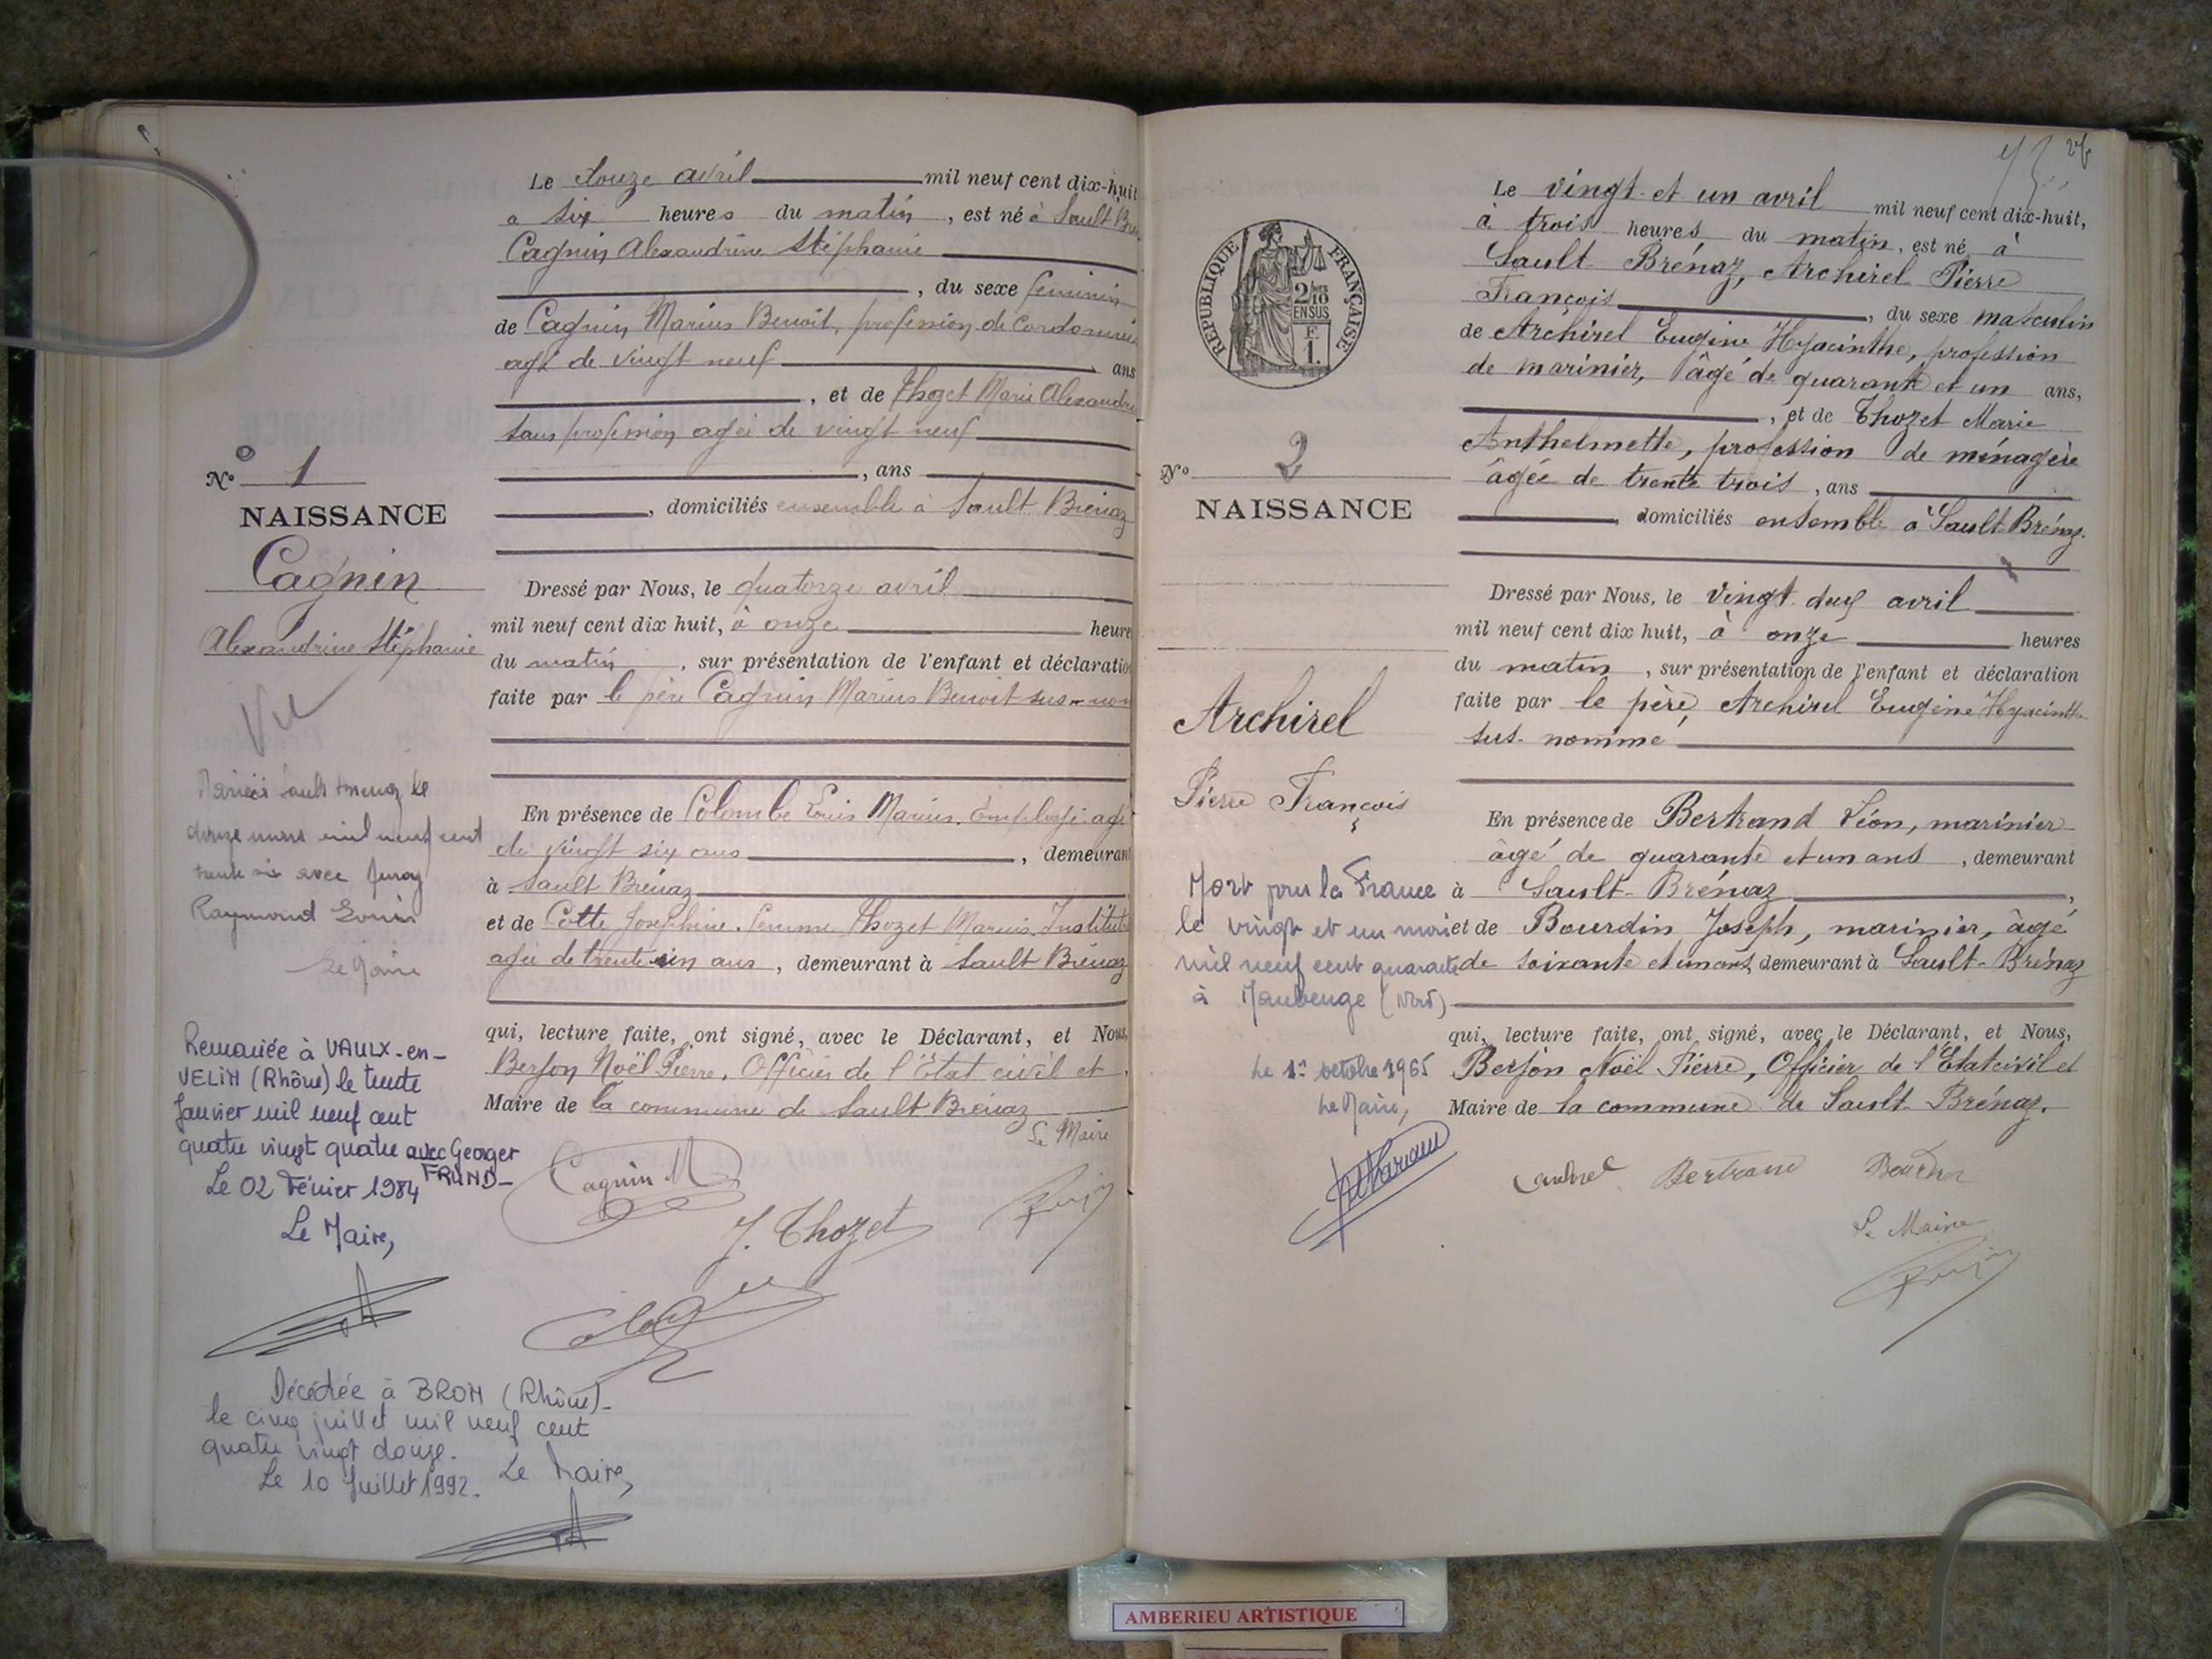 Le douze avril mil neuf cent dix-huit
a six heures du matin, est né à Sault Bré
Cagnin Alexandrine Stéphanie
, du sexe féminin
de Cagnin Marius Benoit, profession de Cordonnie
agé de vingt neuf ans
, et de Thozet Marie Alexandri
sans profession agée de vingt neuf
, ans
, domiciliés ensemble à Sault Brénaz
N° 1
NAISSANCE
Cagnin
Alexandrine Stéphanie
Dressé par Nous, le quatorze avril
mil neuf cent dix huit, à onze heure
du matin, sur présentation de l'enfant et déclaratio
faite par le père Cagnin Marius Benoit sus-nom
En présence de Colombe Louis Marius. Employé agé
de vingt six ans, demeurant
à Sault Brénaz
et de Cotte Joséphine. femme Thozet Marius. Institut
agée de trente un ans, demeurant à Sault Brénaz
qui, lecture faite, ont signé, avec le Déclarant, et Nous,
Berjon Noël Pierre, Officier de l'État civil et
Maire de la commune de Sault Brénaz
Le Maire
Cagnin M
J. Thozet
Mariée Sault Brenaz le
douze mars mil neuf cent
trente six avec
Raymond Louis
Le Maire
Remariée à VAULX-en-
VELIN (Rhône) le trente
Janvier mil neuf cent
quatre vingt quatre avec Georges
FRUND-
Le 02 Février 1984
Le Maire,
Décédée à BRON (Rhône)-
le cinq juillet mil neuf cent
quatre vingt douze.
Le 10 Juillet 1992. Le Maire,
26
RÉPUBLIQUE FRANÇAISE
2/10
EN SUS
F.
1.
Le vingt-et un avril mil neuf cent dix-huit,
à trois heures du matin, est né à
Sault Brénaz, Archirel Pierre
François, du sexe masculin
de Archirel Eugène Hyacinthe, profession
de marinier, âgé de quarante et un ans,
, et de Thozet Marie
Anthelmette, profession de ménagère
âgée de trente trois, ans
, domiciliés ensemble à Sault-Brénaz.
N° 2
NAISSANCE
Archirel
Pierre François
Dressé par Nous, le vingt deux avril
mil neuf cent dix huit, à onze heures
du matin, sur présentation de l'enfant et déclaration
faite par le père, Archirel Eugène Hyacinthe
sus-nommé
En présence de Bertrand Léon, marinier
âgé de quarante et un ans, demeurant
à Sault-Brénaz,
et de Bourdin Joseph, marinier, âgé
de soixante et un ans, demeurant à Sault-Brénaz
qui, lecture faite, ont signé, avec le Déclarant, et Nous,
Berjon Noël Pierre, Officier de l'Etat civil et
Maire de la commune de Sault Brénaz.
Bertrand Bourdin
Le Maire
Mort pour la France
le vingt et un mai
mil neuf cent quarante
à Maubeuge (Nord)
Le 1er octobre 1965
Le Maire,
AMBERIEU ARTISTIQUE